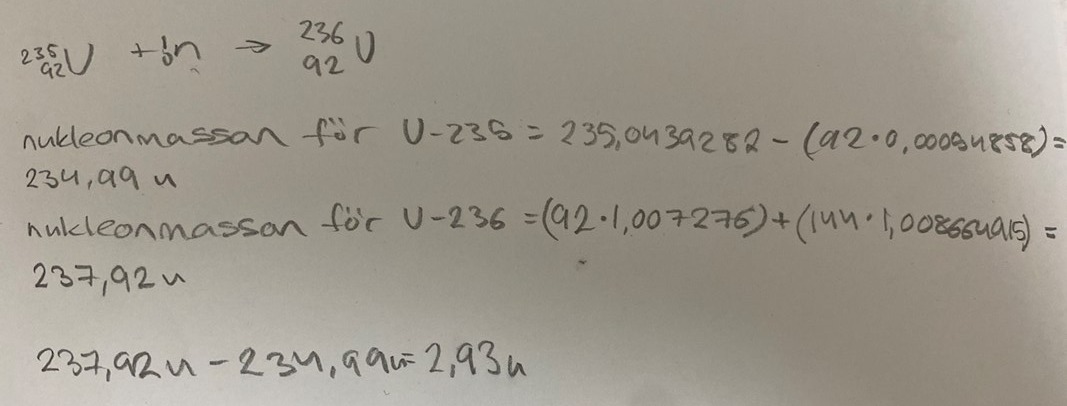 ²³⁵₉₂U + ¹₀n → ²³⁶₉₂U
nukleonmassan för U-235 = 235,0439282 - (92·0,00054858) =
234,99 u
nukleonmassan för U-236 = (92·1,007276) + (144·1,008664915) =
237,92 u
237,92u - 234,99u = 2,93u